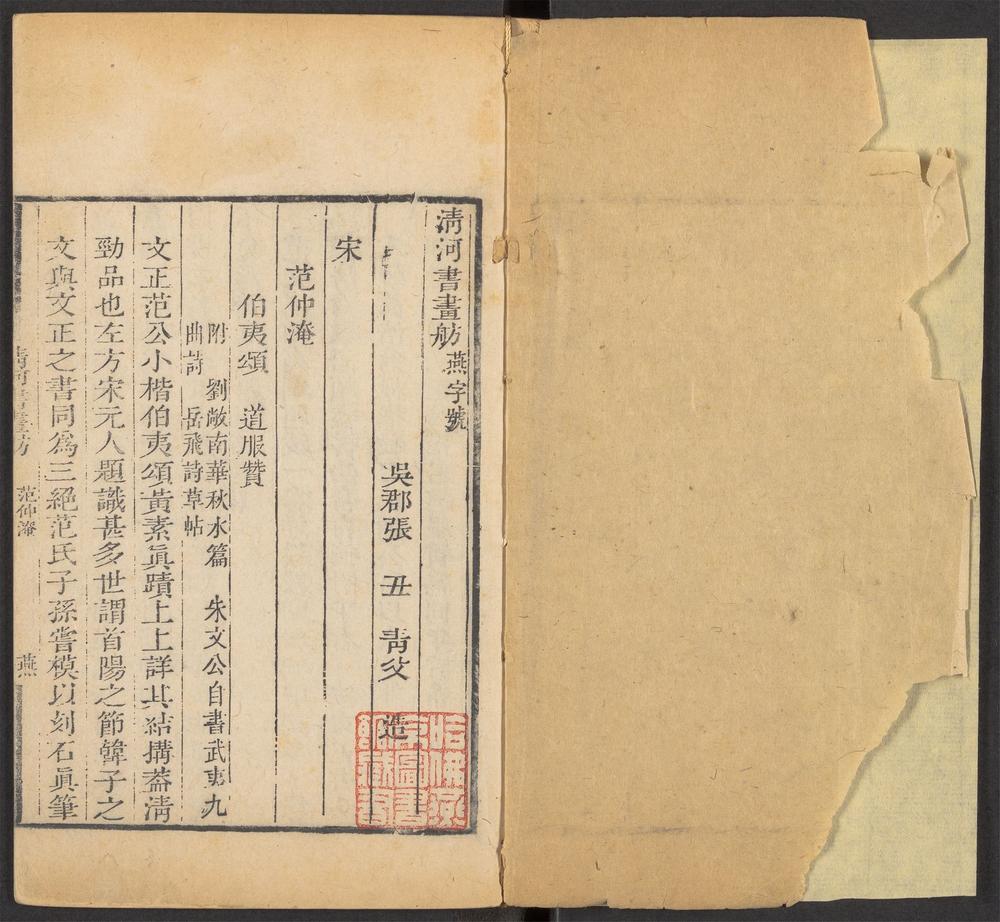 清河書畫舫燕字號
吳郡張 丑 青父 造
宋
范仲淹
伯夷頌 道服贊
附 劉敞南華秋水篇 朱文公自書武夷九
曲詩 岳飛詩草帖
文正范公小楷伯夷頌黃素眞蹟上上詳其結搆葢淸
勁品也左方宋元人題識甚多世謂首陽之節韓子之
文與文正之書同爲三絕范氏子孫嘗模以刻石眞筆
清河書畫舫 范仲淹 燕
哈佛燕
京圖書
館藏書